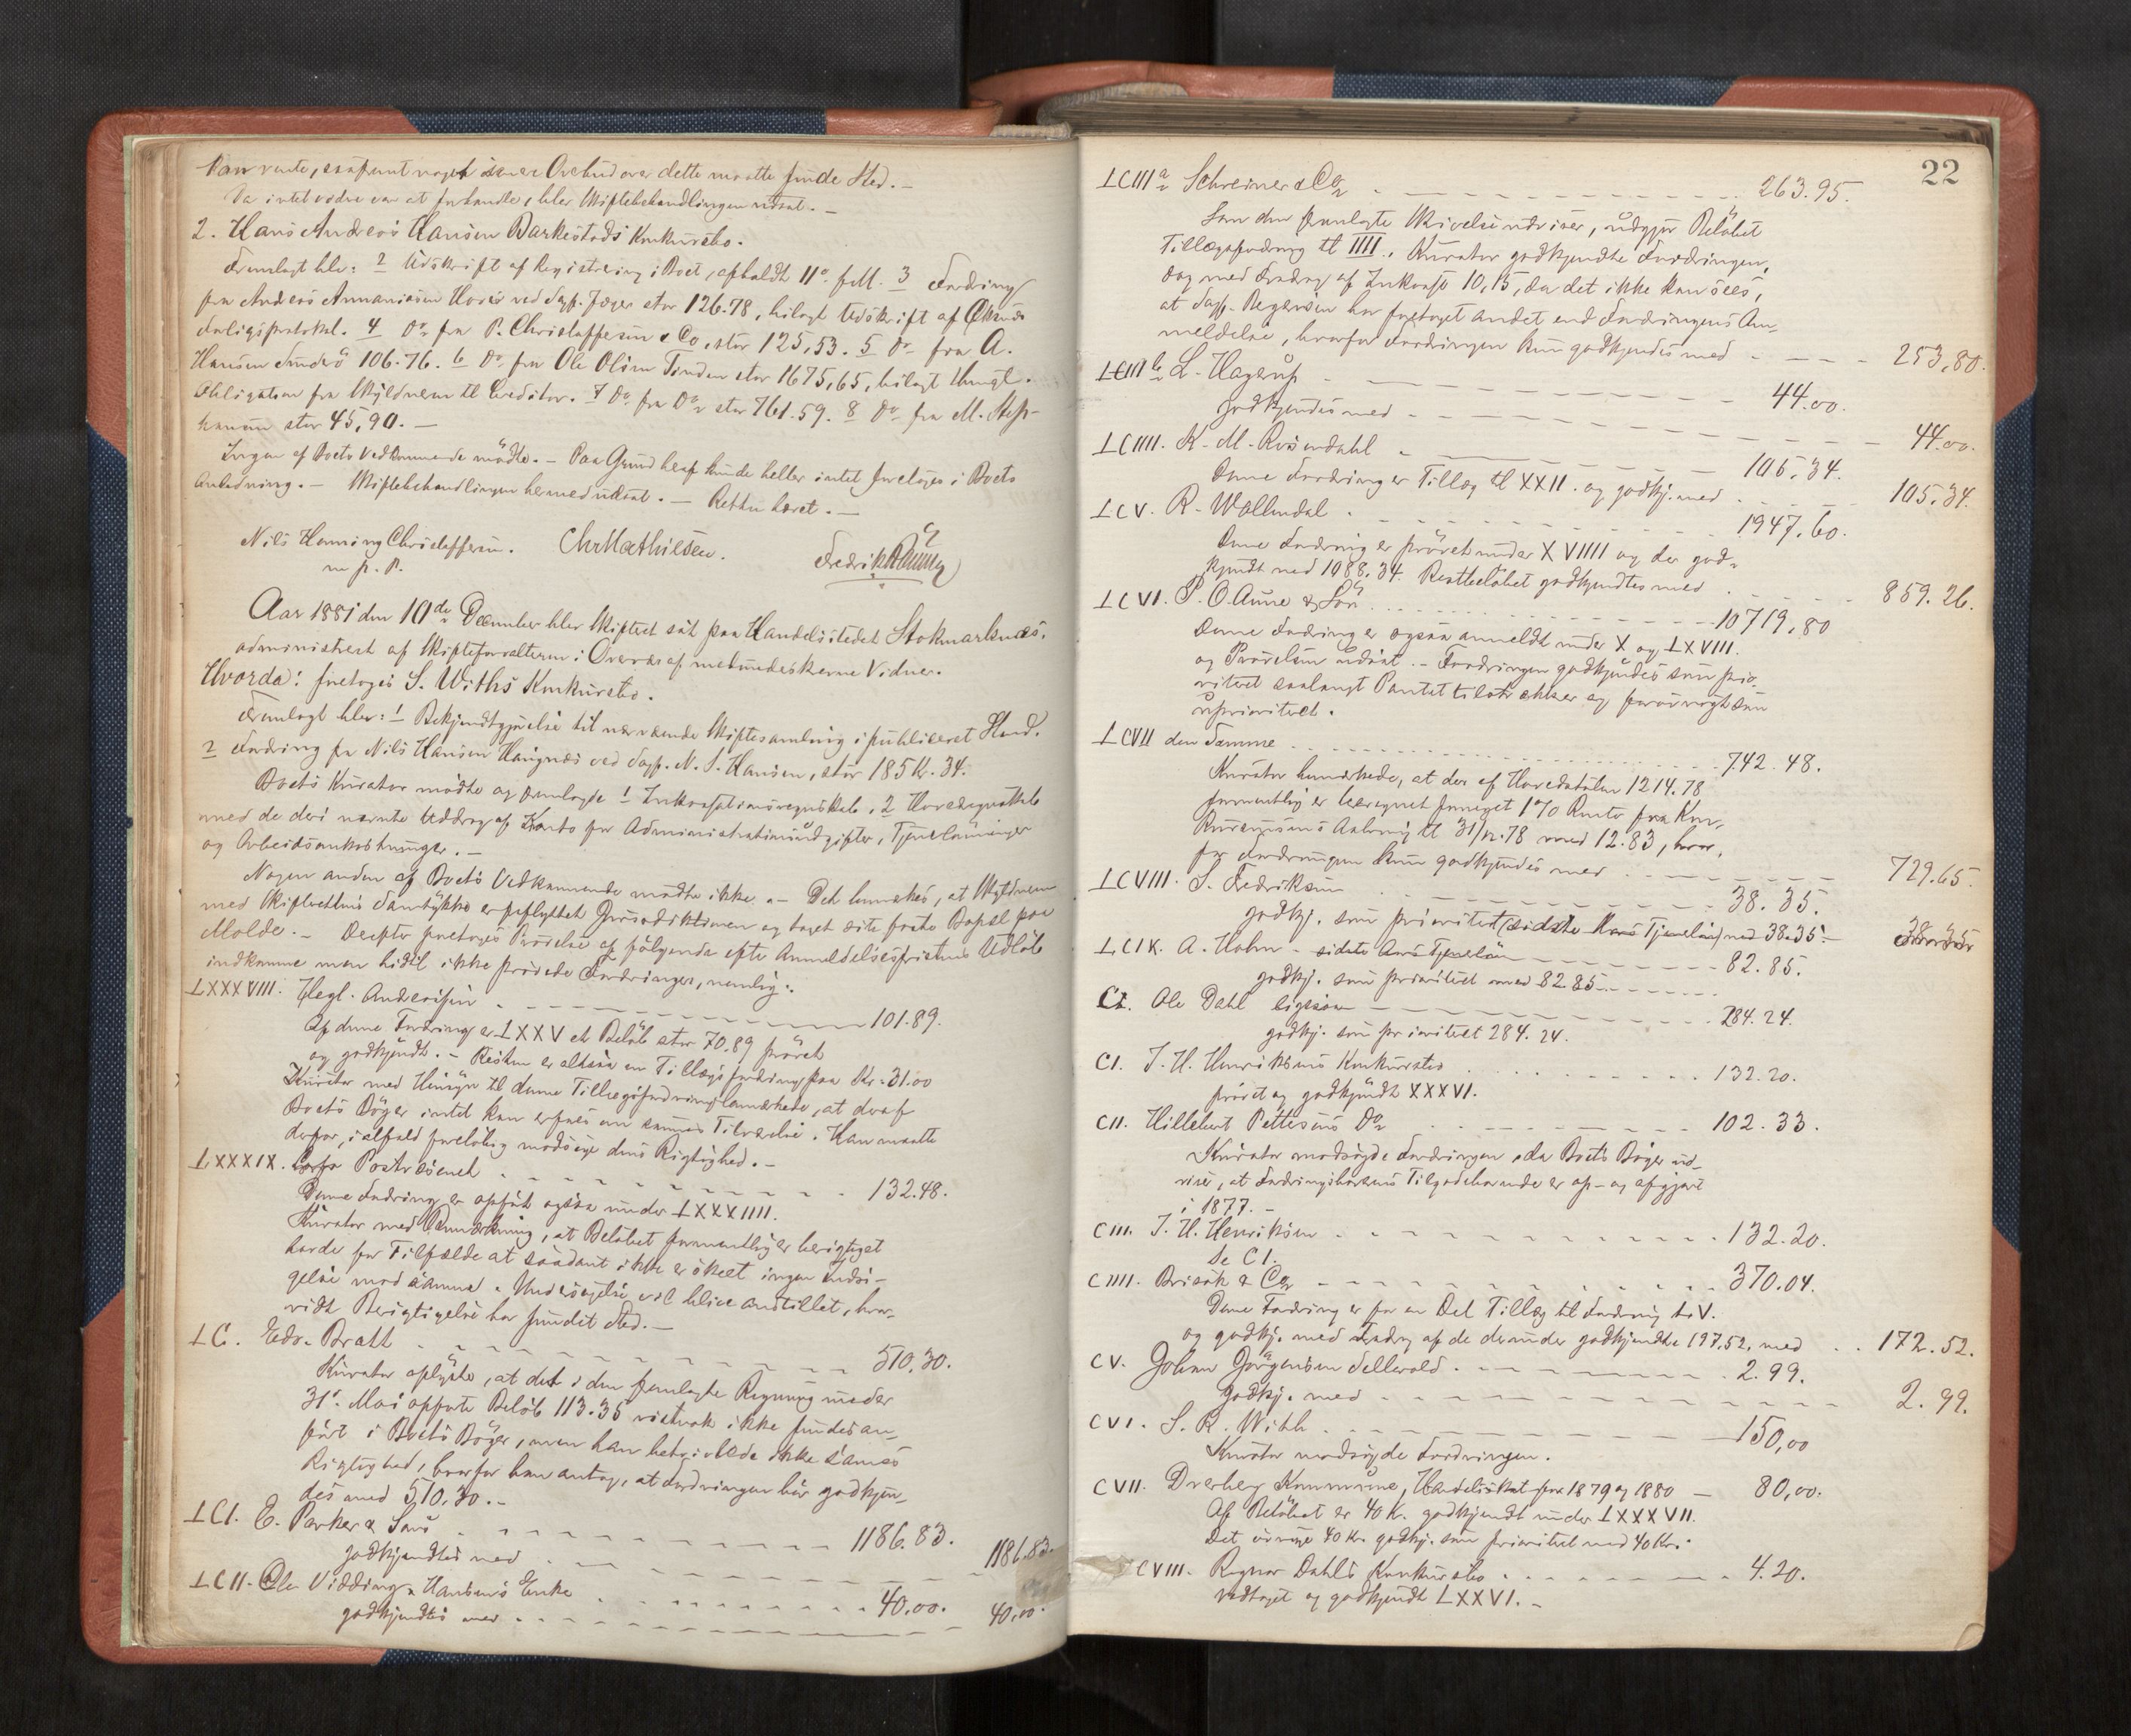 kan vente, saafremt noget Overbud over dette maatte finde Sted. –
Da intet videre var at forhandle, blev Skiftebehandlingen udsat. –
2. Hans Andreas Hansen Barkestads Konkursbo.
Fremlagt blev: 2 Udskrift af Registrering i Boet, afholdt 11te f. M. 3 Fordring
fra Andreas Annaniasen Hovis ved Sagf. Jæger stor 126.78, bilagt Udskrift af
Forligsprotokol. 4 Do fra P. Christoffersen & Co, stor 125,53. 5 Do fra A.
Hansen 106.76. 6 Do fra Ole Olsen Tinden stor 1675,65, bilagt Thingl.
Obligation fra Skyldneren til Creditor. 7 Do fra Do stor 761.59. 8 Do fra M. Stef-
fensen stor 45,90. –
Ingen af Boets Vedkommende mødte. – Paa Grund heraf kunde heller intet foretages i Boets
Anledning. – Skiftebehandlingen hermed udsat. – Retten hævet. –
Nils Henning Christoffersen.
m. p. P.
Chr Mathiesen.
Fredrik
Aar 1881 den 10de December blev Skifteret sat paa Handelsstedet Stokmarknæs,
administreret af Skifteforvalteren i Overvær af medundertegnede Vidner.
Hvorda: foretoges S. Withs Konkursbo.
Fremlagt blev: 1 Bekjendtgjørelse til nærværende Skiftesamling i publiceret Stand.
2 Fordring fra Nils Hansen Haugnæs ved Sagf. N. S. Hansen, stor 185 Kr. 34.
Boets Kurator mødte og fremlagde 1 Inkassationsregnskab, 2 Hovedregnskab
med de deri nævnte Uddrag af Konto for Administrationsudgifter, Tjenerlønninger
og Arbeidsomkostninger. –
Nogen anden af Boets Vedkommende mødte ikke. – Det bemærkes, at Skyldneren
med Skifterettens Samtykke er fraflyttet Jurisdiktionen og taget sit faste Bopæl paa
Molde. – Derefter foretoges Prøvelse af følgende efter Anmeldelsesfristens Udløb
indkomne men hidtil ikke prøvede Fordringer, nemlig:
LXXXVIII. Hegl. Anderssen - - - 101.89.
Af denne Fordring er LXXV et Beløb stor 70.89 prøvet
og godkjendt. – Resten er altsaa en Tillægsfordring paa Kr. 31.00
Kurator med Hensyn til denne Tillægsfordring bemærkede, at deraf
Boets Bøger intet kan erfares om sammes Tilværelse. Han maatte
derfor, i alfald foreløbig modsige dens Rigtighed. –
LXXXIX. Postvæsenet - - - 132.48.
Denne Fordring er opført ogsaa under LXXXIIII.
Kurator med Bemærkning, at Beløbet formentlig er berigtiget
havde for Tilfælde at saadant ikke er skeet ingen Indsi-
gelse mod samme. Undersøgelse vil blive anstillet, hvor-
vidt Berigtigelse har fundet Sted. –
LC. Edv. Bratt - - - 510,30.
Kurator oplyste, at det i den fremlagte Regning under
31te Mai opførte Beløb 113.35 vistnok ikke findes an-
ført i Boets Bøger, men han betvivlede ikke sammes
Rigtighed, hvorfor han antog, at Fordringen bør godkjen-
des med 510,30. –
LCI. E. Parker & Søns - - - 1186.83.
godkjendtes med - - - 1186.83.
LCII. Ole Vidding Hansens Enke - - - 40,00.
godkjendtes med - - - 40,00.
22
LCIII a Schreiner & Co - - - 263.95.
Som den fremlagte Skrivelse udviser, udgjør Beløbet
Tillægsfordring til IIII. Kurator godkjendte Fordringen,
dog med Fradrag af Inkasso 10,15, da det ikke kan sees,
at Sagf. Bergersen har foretaget andet end Fordringens An-
meldelse, hvorfor Fordringen kun godkjendes med - - - 253,80.
LCIII b L. Hagerup - - - 44.00.
godkjendes med - - - 44.00.
LCIIII. K. M. Rosendahl - - - 105.34.
Denne Fordring er Tillæg til XXII. og godkj. med - - - 105.34.
LCV. R. Wollendal - - - 1947.60.
Denne Fordring er prøvet under XVIIII og der god-
kjendt med 1088.34. Restbeløbet godkjendtes med - - - 859.26.
LCVI. P. O. Aune & Søn - - - 10719,80
Denne Fordring er ogsaa anmeldt under X og LXVIII.
og Prøvelsen udsat. – Fordringen godkjendes som prio-
riteret saalangt Pantet tilstrækker og forøvrigt som
uprioriteret.
LCVII den Samme - - - 742.48.
Kurator bemærkede, at der af Hovedstolen 1214.78
formentlig er beregnet formeget 1% Rente fra Kon-
kursens Aabning til 31/12.78 med 12.83, hvor-
for Fordringen kun godkjendes med - - - 729.65.
LCVIII. S. Fredriksen - - - 38.35.
godkj. som prioriteret (sidste Aars Tjenerløn) med 38.35. -
LCIX. A. Hahn - sidste Aars Tjenerløn - - - 82.85.
godkj. som prioriteret med 82.85 - - -
C. Ole Dahl ligesaa - - - 284.24.
godkj. som prioriteret 284.24.
CI. J. H. Henriksens Konkursbo - - - 132.20.
prøvet og godkjendt XXXVI.
CII. Hillebert Pettersens Do - - - 102.33.
Kurator modsagde Fordringen, da Boets Bøger ud-
viser, at Fordringshaverens Tilgodehavende er op- og afgjort
i 1877. –
CIII. J. H. Henriksen - - - 132.20.
Se CI.
CIIII. Brisak & Co - - - 370.04.
Denne Fordring er for en Del Tillæg til Fordring LV.
og godkj. med Fradrag af de derunder godkjendte 197,52, med - - 172.52.
CV. Johan Jørgensen Sellevold - - - 2.99.
godkj. med - - - 2.99.
CVI. S. R. With - - - 150,00
Kurator modsagde Fordringen.
CVII. Dverberg Kommune, Handelsskat for 1879 og 1880 - 80,00.
Af Beløbet er 40 K. godkjendt under LXXXVII.
Det øvrige 40 Kr. godkj. som prioriteret med 40 Kr.
CVIII. Ragnar Dahls Konkursbo - - - 4.20.
vedtaget og godkjendt LXXVI. –